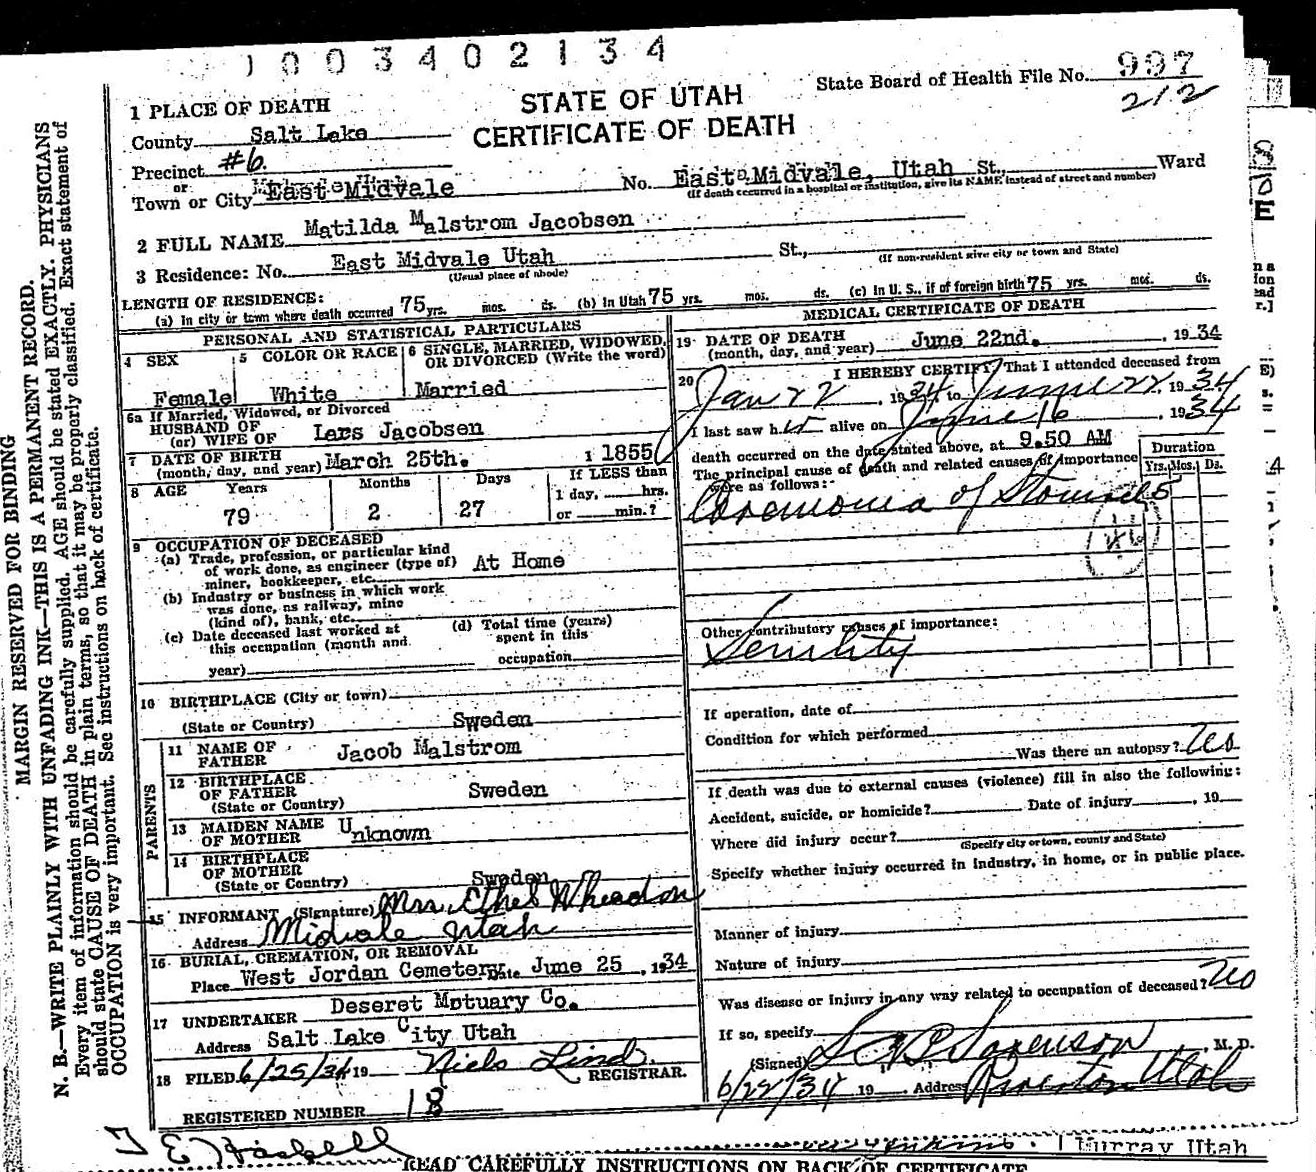 1003402134
State Board of Health File No. 997
212
STATE OF UTAH
CERTIFICATE OF DEATH
1 PLACE OF DEATH
County Salt Lake
Precinct #6.
or
Town or City East Midvale No. East Midvale, Utah St., Ward
(If death occurred in a hospital or institution, give its NAME instead of street and number)
2 FULL NAME Matilda Malstrom Jacobsen
3 Residence: No. East Midvale Utah St.,
(Usual place of abode) (If non-resident give city or town and State)
LENGTH OF RESIDENCE:
(a) In city or town where death occurred 75 yrs. mos. ds. (b) In Utah 75 yrs. mos. ds. (c) In U. S., if of foreign birth 75 yrs. mos. ds.
PERSONAL AND STATISTICAL PARTICULARS
4 SEX
Female
5 COLOR OR RACE
White
6 SINGLE, MARRIED, WIDOWED,
OR DIVORCED (Write the word)
Married
6a If Married, Widowed, or Divorced
HUSBAND OF
(or) WIFE OF Lars Jacobsen
7 DATE OF BIRTH
(month, day, and year) March 25th. 1 1855
8 AGE Years Months Days If LESS than
79 2 27 1 day, hrs.
or min.?
9 OCCUPATION OF DECEASED
(a) Trade, profession, or particular kind
of work done, as engineer (type of) At Home
miner, bookkeeper, etc.
(b) Industry or business in which work
was done, as railway, mine
(kind of), bank, etc.
(c) Date deceased last worked at
this occupation (month and
year)
(d) Total time (years)
spent in this
occupation
10 BIRTHPLACE (City or town)
(State or Country) Sweden
PARENTS
11 NAME OF
FATHER Jacob Malstrom
12 BIRTHPLACE
OF FATHER Sweden
(State or Country)
13 MAIDEN NAME
OF MOTHER Unknown
14 BIRTHPLACE
OF MOTHER
(State or Country) Sweden
15 INFORMANT (Signature) Mrs. Ethel Wheadon
Address Midvale Utah
16 BURIAL, CREMATION, OR REMOVAL
Place West Jordan Cemetery Date June 25, 1934
17 UNDERTAKER Deseret Motuary Co.
Address Salt Lake City Utah
18 FILED 6/25/34 19 Niels Lind.
REGISTRAR.
REGISTERED NUMBER 18
MEDICAL CERTIFICATE OF DEATH
19 DATE OF DEATH
(month, day, and year) June 22nd., 1934
20 I HEREBY CERTIFY, That I attended deceased from
Jan 22, 1934 to June 22, 1934
I last saw her alive on June 16, 1934
death occurred on the date stated above, at 9.50 AM
The principal cause of death and related causes of importance
were as follows:
Duration
Yrs. Mos. Ds.
Carcinoma of Stomach 5
46
Other contributory causes of importance:
Senility
If operation, date of
Condition for which performed
Was there an autopsy? No
If death was due to external causes (violence) fill in also the following:
Accident, suicide, or homicide? Date of injury, 19
Where did injury occur?
(Specify city or town, county and State)
Specify whether injury occurred in industry, in home, or in public place.
Manner of injury
Nature of injury
Was disease or injury in any way related to occupation of deceased? No
If so, specify
(Signed) Sorenson, M. D.
6/22/34 19 Address Riverton Utah
MARGIN RESERVED FOR BINDING
N. B.—WRITE PLAINLY WITH UNFADING INK—THIS IS A PERMANENT RECORD.
Every item of information should be carefully supplied. AGE should be stated EXACTLY. PHYSICIANS
should state CAUSE OF DEATH in plain terms, so that it may be properly classified. Exact statement of
OCCUPATION is very important. See instructions on back of certificate.
Murray Utah
READ CAREFULLY INSTRUCTIONS ON BACK OF CERTIFICATE